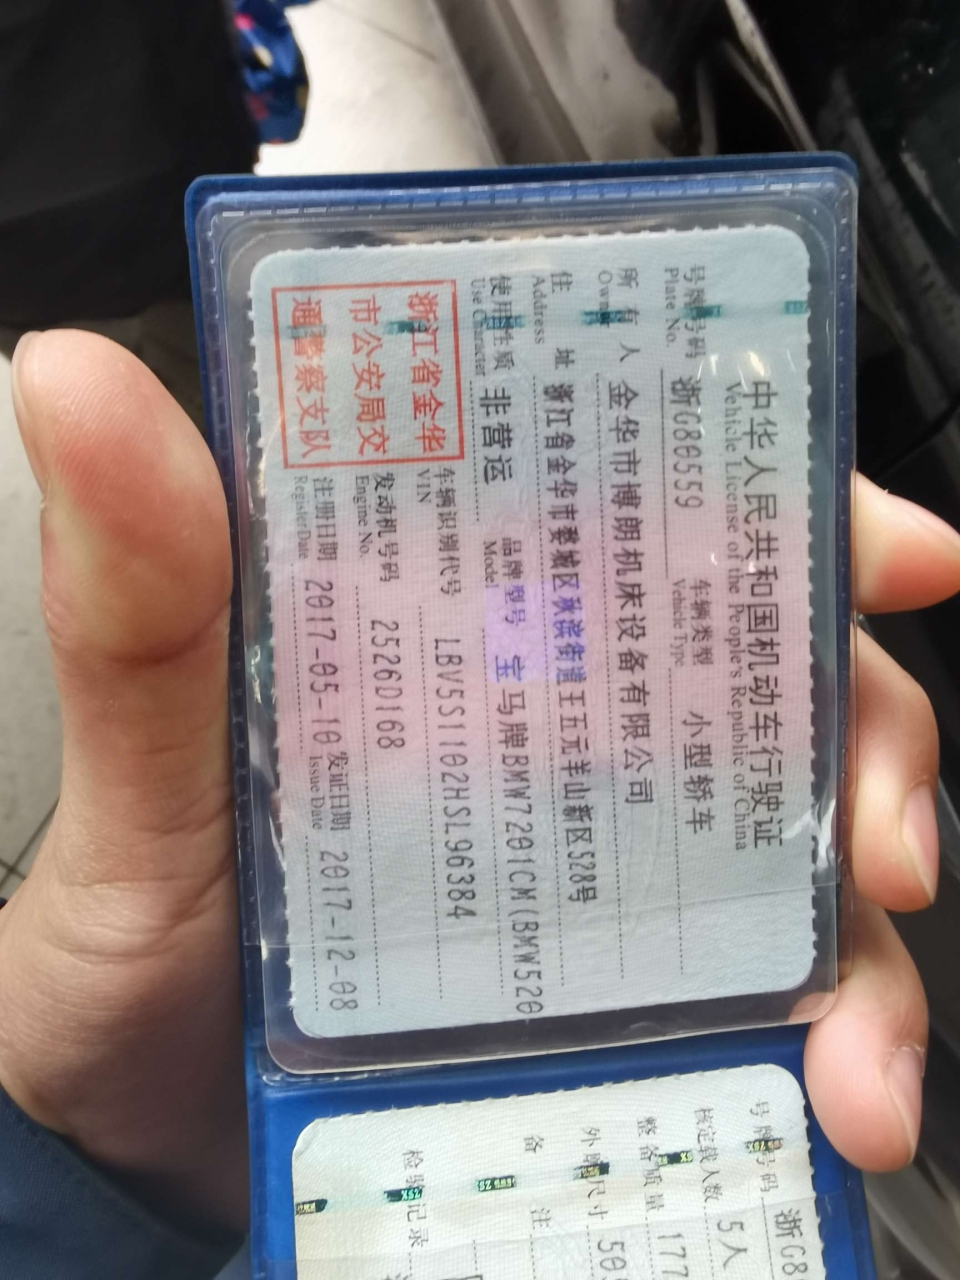 中华人民共和国机动车行驶证
Vehicle License of the People's Republic of China
号牌号码 浙G80559 车辆类型 小型轿车
Plate No. Vehicle Type
所有人 金华市博朗机床设备有限公司
Owner
住址 浙江省金华市婺城区秋滨街道王五元羊山新区528号
Address
使用性质 非营运 品牌型号 宝马牌BMW7201CM(BMW520
Use Character Model
浙江省金华
市公安局交
通警察支队
车辆识别代号 LBV5S1102HSL96384
VIN
发动机号码 2526D168
Engine No.
注册日期 2017-05-10 发证日期 2017-12-08
Register Date Issue Date
号牌号码 浙G8
核定载人数 5人
整备质量 177
外廓尺寸 50
备注
检验记录